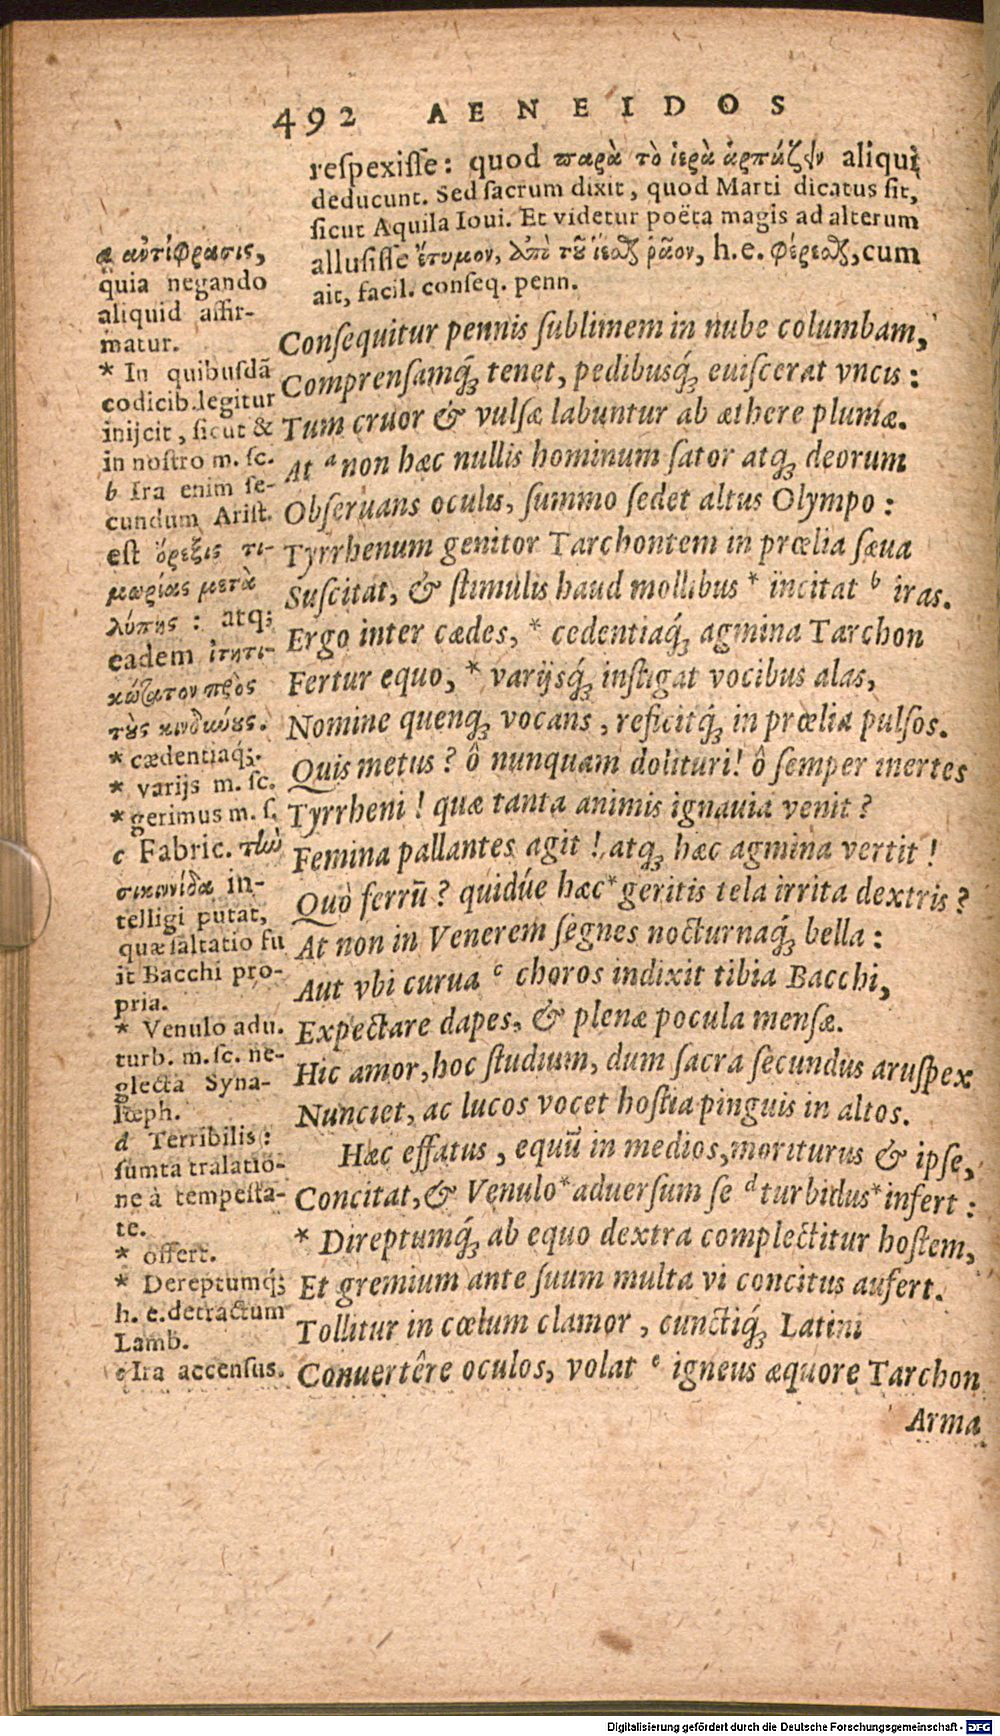 492 AENEIDOS
respexisse: quod παρὰ τὸ ἱερὰ ἁρπάζειν aliqui
deducunt. Sed sacrum dixit, quod Marti dicatus sit,
sicut Aquila Ioui. Et videtur poëta magis ad alterum
allusisse ἔτυμον, ἀπὸ τοῦ ἵεσθαι ῥᾷον, h. e. φέρεσθαι, cum
ait, facil. conseq. penn.
Consequitur pennis sublimem in nube columbam,
Comprensamq́; tenet, pedibusq́; euiscerat vncis:
Tum cruor & vulsæ labuntur ab æthere plumæ.
At ᵃ non hæc nullis hominum sator atq; deorum
Obseruans oculis, summo sedet altus Olympo:
Tyrrhenum genitor Tarchontem in prœlia sæua
Suscitat, & stimulis haud mollibus * incitat ᵇ iras.
Ergo inter cædes, * cedentiaq́; agmina Tarchon
Fertur equo, * varijsq́; instigat vocibus alas,
Nomine quenq; vocans, reficitq́; in prœlia pulsos.
Quis metus? ô nunquam dolituri! ô semper inertes
Tyrrheni! quæ tanta animis ignauia venit?
Femina pallantes agit! atq; hæc agmina vertit!
Quò ferrū? quidúe hæc * geritis tela irrita dextris?
At non in Venerem segnes nocturnaq́; bella:
Aut vbi curua ᶜ choros indixit tibia Bacchi,
Expectare dapes, & plenæ pocula mensæ.
Hic amor, hoc studium, dum sacra secundus aruspex
Nunciet, ac lucos vocet hostia pinguis in altos.
Hæc effatus, equū in medios, moriturus & ipse,
Concitat, & Venulo * aduersum se ᵈ turbidus * infert:
* Direptumq́; ab equo dextra complectitur hostem,
Et gremium ante suum multa vi concitus aufert.
Tollitur in cœlum clamor, cunctiq́; Latini
Conuertêre oculos, volat ᵉ igneus æquore Tarchon
Arma
a αντίφρασις,
quia negando
aliquid affir-
matur.
* In quibusdā
codicib. legitur
inijcit, sicut &
in nostro m. sc.
b Ira enim se-
cundum Arist.
est ὄρεξις τι-
μωρίας μετὰ
λύπης: atq;
eadem ἰτητι-
κώτατον πρὸς
τοὺς κινδύνους.
* cædentiaq;.
* varijs m. sc.
* gerimus m. s.
c Fabric. τὴν
σικιννίδα in-
telligi putat,
quæ saltatio fu
it Bacchi pro-
pria.
* Venulo adu.
turb. m. sc. ne-
glecta Syna-
lœph.
d Terribilis:
sumta tralatio-
ne à tempesta-
te.
* offert.
* Dereptumq;
h. e. detractum
Lamb.
e Ira accensus.
Digitalisierung gefördert durch die Deutsche Forschungsgemeinschaft - DFG